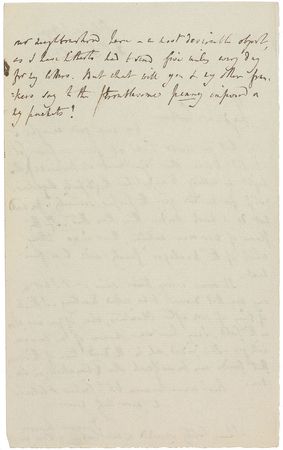 our neighbourhood have – a most desirable object,
as I have hitherto had to send five miles every day
for my letters. But what will you & my other fran-
kers say to the troublesome penny imposed on
my packets?